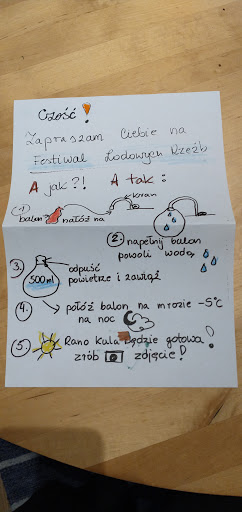 Cześć!
Zapraszam Ciebie na
Festiwal Lodowych Rzeźb
A jak?! A tak:
kran
1. balon nałóż na
2. napełnij balon
powoli wodą
3. 500ml odpuść
powietrze i zawiąż
4. połóż balon na mrozie -5°C
na noc
5. Rano kula będzie gotowa
zrób zdjęcie!